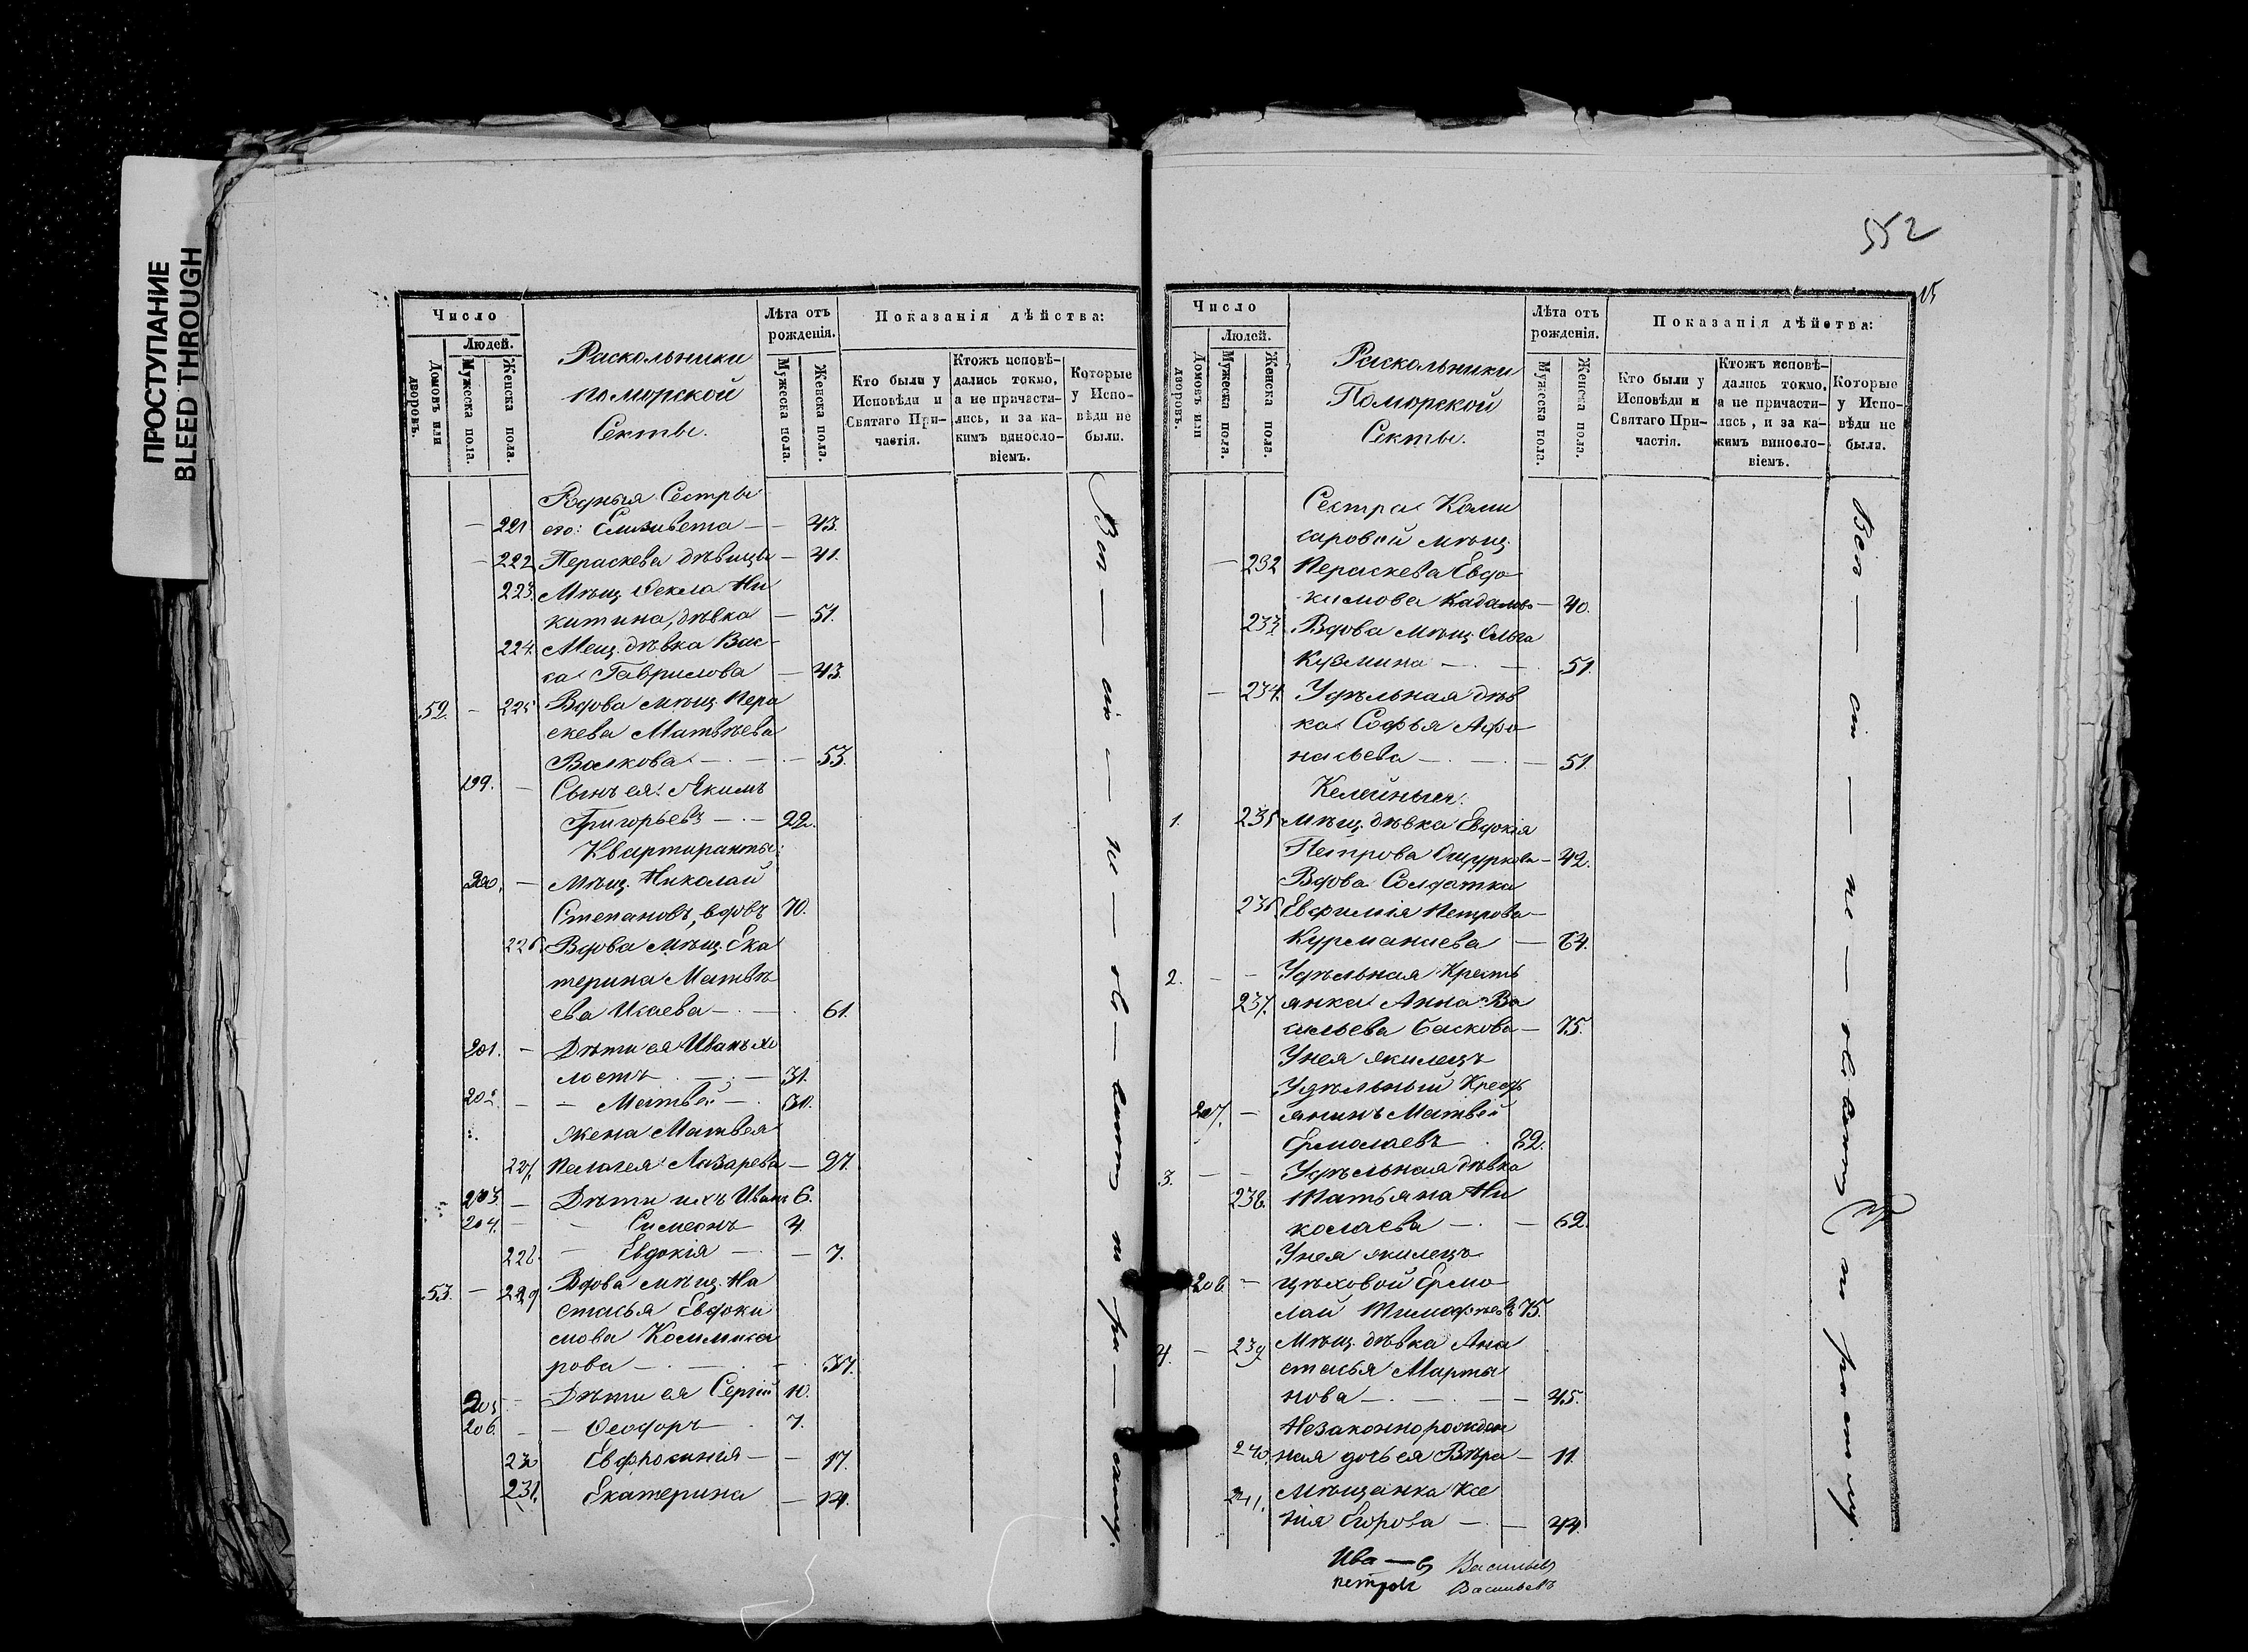 ПРОСТУПАНИЕ
BLEED THROUGH
552
15
Число
Людей.
Домовъ или дворовъ.
Мужеска пола.
Женска пола.
Раскольники
поморской
Секты.
Лѣта отъ
рожденія.
Мужеска пола.
Женска пола.
Показанія дѣйства:
Кто были у
Исповѣди и
Святаго При-
частія.
Ктожъ исповѣ-
дались токмо,
а не причасти-
лись, и за ка-
кимъ винос­ло-
віемъ.
Которые
у Испо-
вѣди не
были.
Родныя Сестры
— 221. его: Елизавета — — 43.
— 222. Пераскева дѣвицы — 41.
223. Мѣщ. Ѳекла Ни
китина, дѣвка — 51.
224. Мещ. дѣвка Вас
са Гаврилова — 43.
52. — 225 Вдова мѣщ. Пера
скева Матвѣева
Волкова — 53.
199. — Сынъ ея Якимъ
Григорьевъ — 22.
Квартиранты:
200. — Мѣщ. Николай
Степановъ, вдовъ 70.
226. Вдова мѣщ. Ека
терина Матвѣ
ева Исаева — 61.
201. — Дѣти ея Иванъ хо
лостъ — 31.
202. — — Матвей — 30.
жена Матвея
227. Пелагея Лазарева — 27.
203. — Дѣти ихъ Иванъ 6.
204. — Симеонъ 4.
228. — Евдокія — — 7.
53. — 229 Вдова мѣщ. На
стасья Евдоки
мова Комиса
рова — 37.
205 — Дѣти ея Сергій 10.
206. — — Ѳеодоръ — 7.
230 Евфросинія — — 17.
231. Екатерина — 14.
Число
Людей.
Домовъ или дворовъ.
Мужеска пола.
Женска пола.
Раскольники
Поморской
Секты.
Лѣта отъ
рожденія.
Мужеска пола.
Женска пола.
Показанія дѣйства:
Кто были у
Исповѣди и
Святаго При-
частія.
Ктожъ исповѣ-
дались токмо,
а не причасти-
лись, и за ка-
кимъ винос­ло-
віемъ.
Которые
у Испо-
вѣди не
были.
Сестра Коми
саровой мѣщ.
— 232 Пераскева Евдо
кимова — 40.
233. Вдова мѣщ. Ольга
Кузмина — 51.
— 234. Удѣльная дѣв
ка Софья Афо
насьева — — 51.
Келейныя:
1. 235 Мѣщ. дѣвка Евдокія
Петрова — 42.
Вдова Солдатка
236. Евфимія Петрова
Курманаева — 64.
2. — — Удѣльная Кресть
237. янка Анна Ва
сильева Баскова — 75.
У нея жилецъ
Удѣльный Крестъ
207. — янинъ Матвей
Ермолаевъ 82.
3. — — Удѣльная дѣвка
238. Татьяна Ни
колаева — — 62.
У нея жилецъ
208. — цѣховой Ермо
лай Тимофѣевъ 75.
4. — 239 Мѣщ. дѣвка Ана
стасья Марты
нова — — 45.
Незаконнорожден
240. ная дочь ея Вѣра — 11.
241. Мѣщанка Ксе
нія Егорова — — 44.
Васильевъ
Петръ Васильевъ